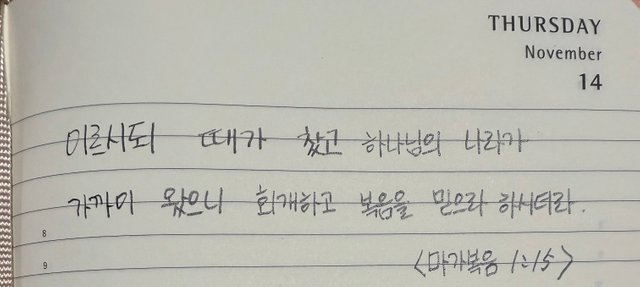 THURSDAY
November
14
이르시되 때가 찼고 하나님의 나라가
가까이 왔으니 회개하고 복음을 믿으라 하시더라.
8
9 <마가복음 1:15>